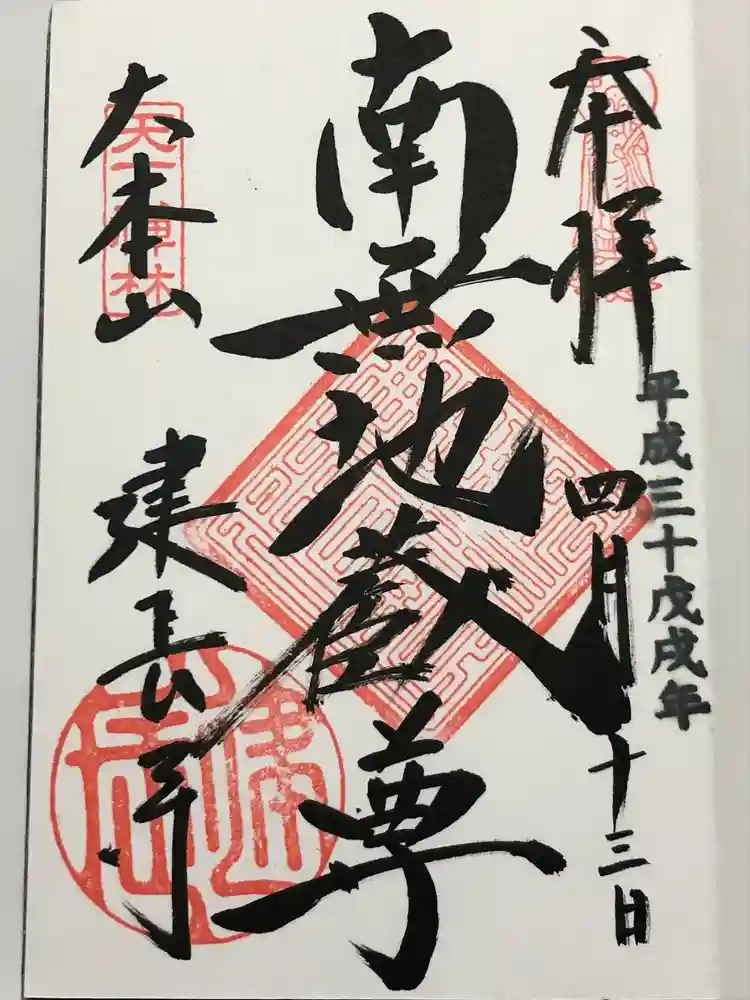 奉拝
平成三十戊戌年
四月十三日
南無地蔵尊
天下禅林
大本山
建長寺